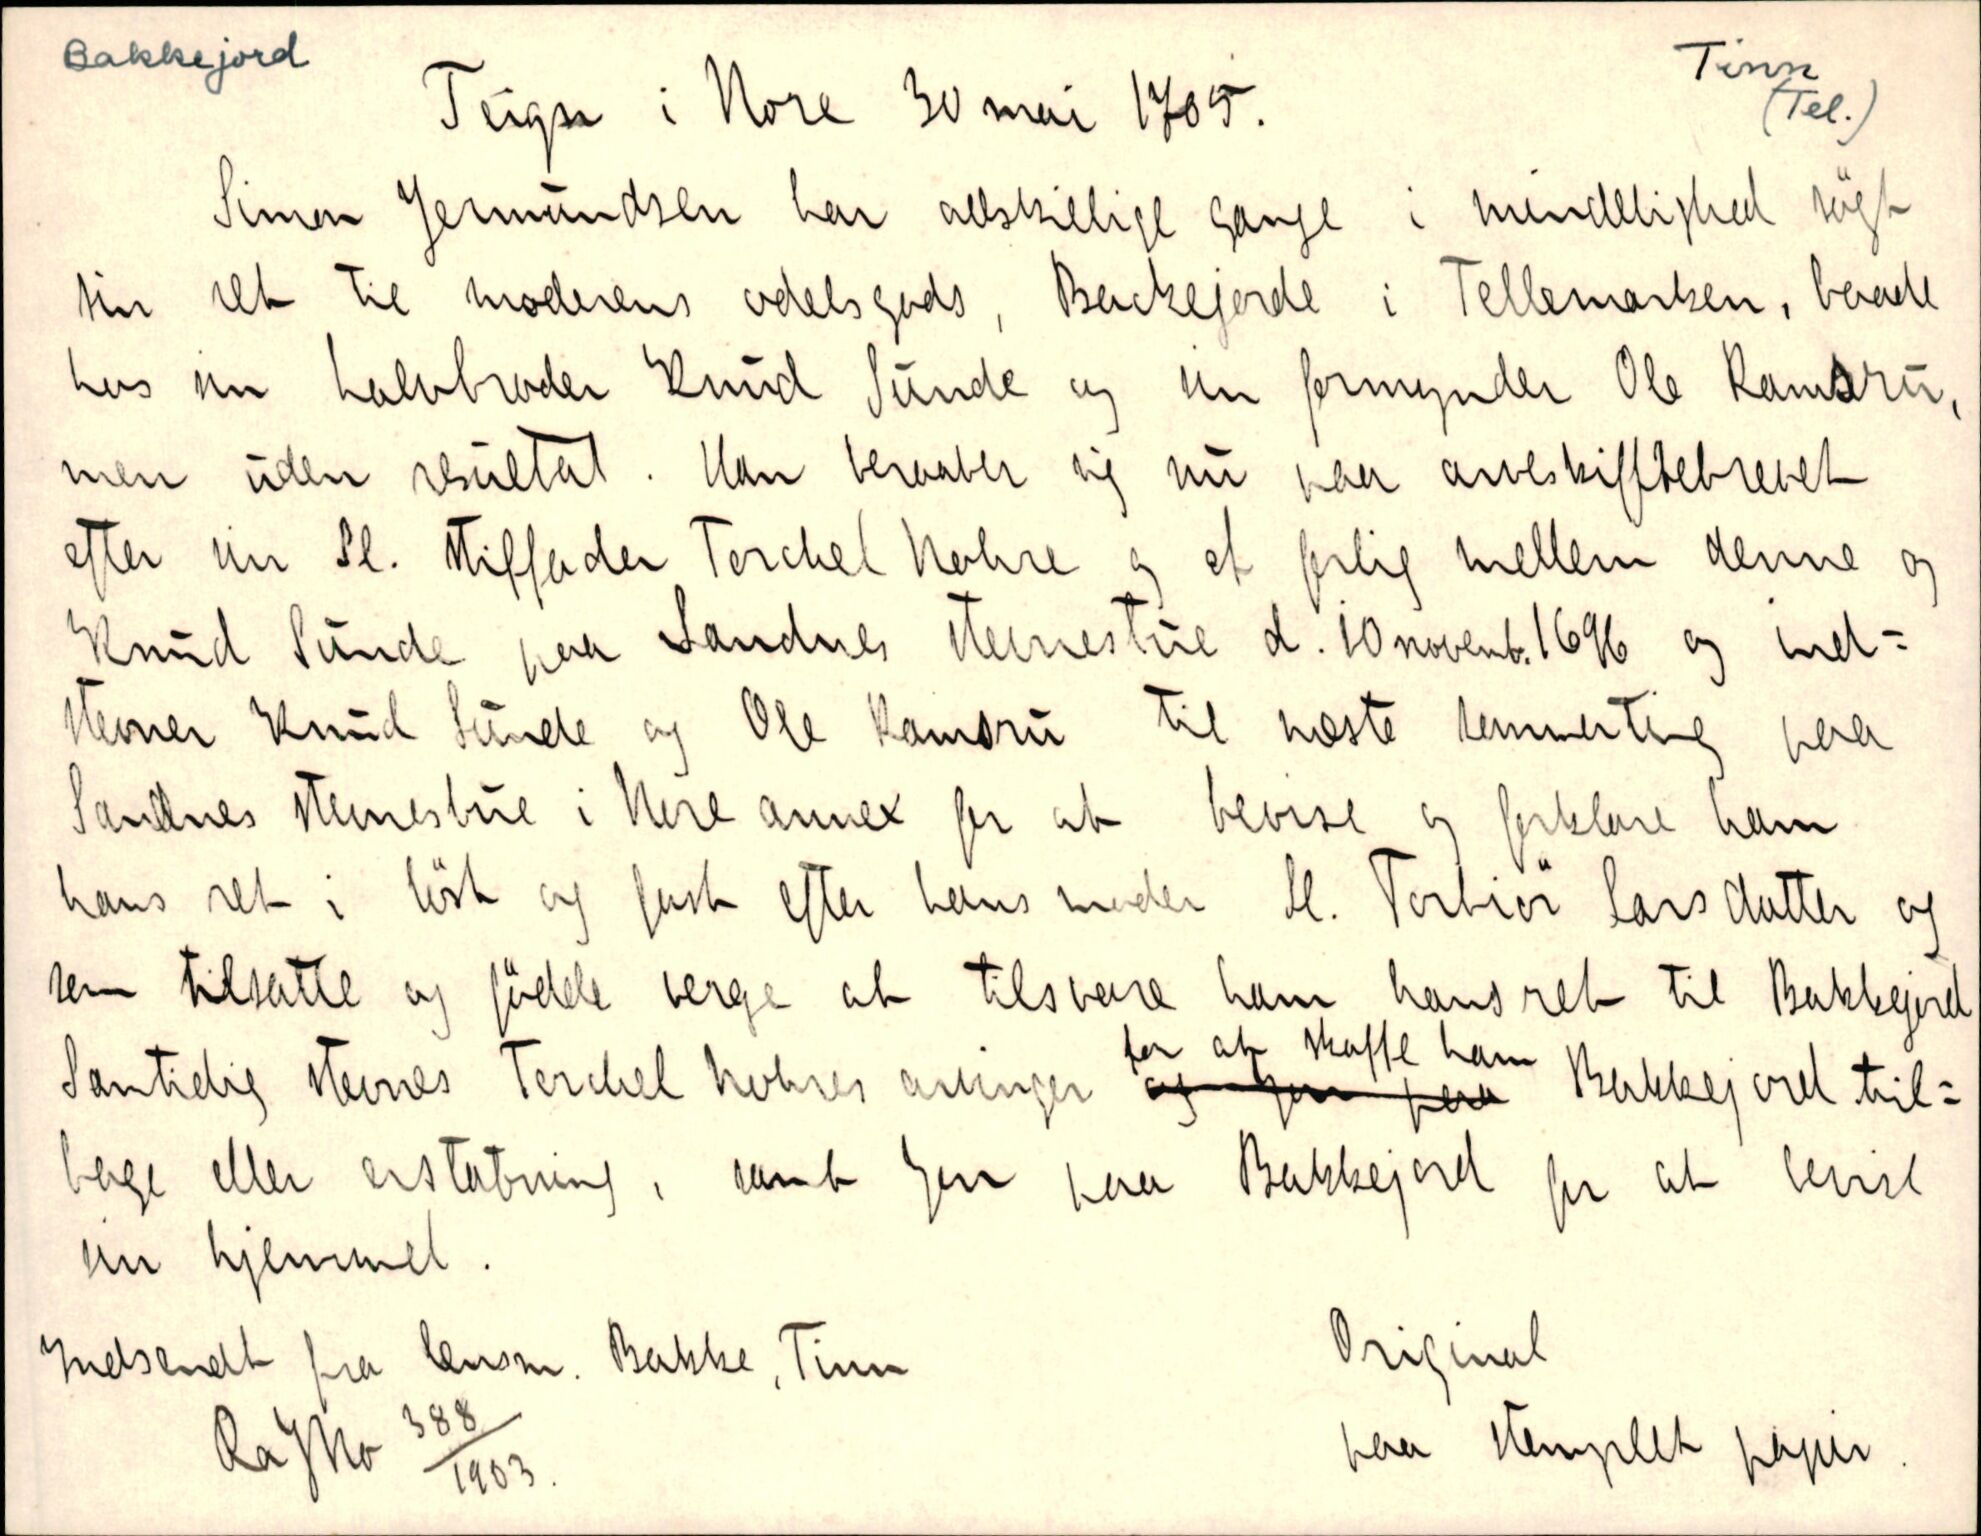 Bakkejord
Tinn
(Tel.)
Teigen i Nore 30 mai 1705.
Simon Jermundsen har adskillige gange i mindelighed søgt
sin ret til moderens odelsgods, Backejorde i Tellemarken, baade
hos sin halvbroder Knud Sunde og sin formynder Ole Ramsru,
men uden resultat. Han beraaber sig nu paa arveskifftebrevet
efter sin Sl. stiffader Torchel Nohre og et forlig mellem denne og
Knud Sunde paa Sandnes stevnestue d. 10 novemb. 1696 og ind=
stevner Knud Sunde og Ole Ramsru til næste sommerting paa
Sandnes stevnestue i Nore annex for at bevise og forklare ham
hans ret i löst og fast efter hans moder Sl. Torbiör Larsdatter og
som tilsatte og födde verge at tilsvare ham hans ret til Bakkejord
Samtidig stevnes Torchel Nohres arvinger for at skaffe ham Bakkejord til=
bage eller erstatning, samt Jon paa Bakkejord for at bevise
sin hjemmel.
Indsendt fra lensm. Bakke, Tinn
Original
RaJNo 388/1903.
paa stemplet papir.